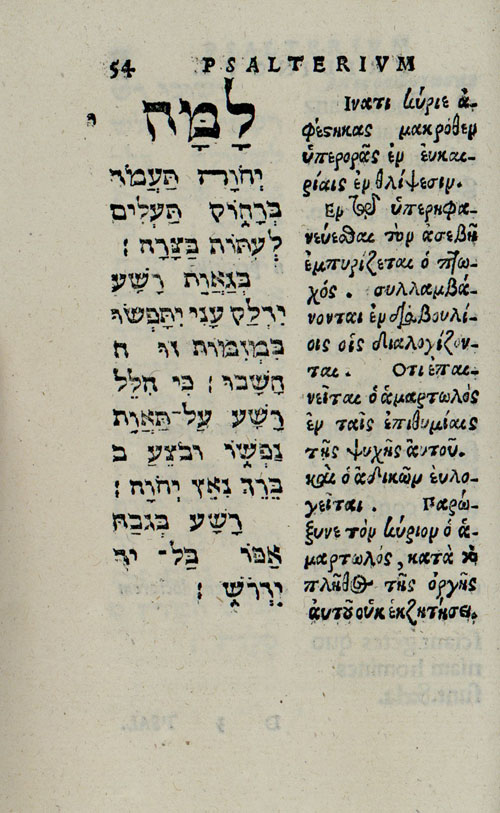 54 PSALTERIVM
לָמָּה
יְהֹוָה תַּעֲמֹד
בְּרָחוֹק תַּעְלִים
לְעִתּוֹת בַּצָּרָה׃
בְּגַאֲוַת רָשָׁע
יִדְלַק עָנִי יִתָּפְשׂוּ
בִּמְזִמּוֹת זוּ ח
חָשָׁבוּ׃ כִּי הִלֵּל
רָשָׁע עַל־תַּאֲוַת
נַפְשׁוֹ וּבֹצֵעַ ב
בֵּרֵךְ נִאֵץ יְהֹוָה׃
רָשָׁע כְּגֹבַהּ
אַפּוֹ בַּל־ יִד
יִדְרֹשׁ׃
Ἱνατί κύριε ἀ-
φέστηκας μακρόθεν
ὑπερορᾷς ἐν ἐυκαι-
ρίαις ἐν θλίψεσιν.
Ἐν τῷ ὑπερηφα-
νεύεσθαι τὸν ἀσεβῆ
ἐμπυρίζεται ὁ πτω-
χός. συλλαμβά-
νονται ἐν διαβουλί-
οις οἷς διαλογίζον-
ται. Ὅτι ἐπαι-
νεῖται ὁ ἁμαρτωλὸς
ἐν ταῖς ἐπιθυμίαις
τῆς ψυχῆς ἀυτοῦ.
καὶ ὁ ἀδικῶν ἐυλο-
γεῖται. Παρώ-
ξυνε τὸν κύριον ὁ ἁ-
μαρτωλὸς, κατὰ τὸ
πλῆθος τῆς ὀργῆς
ἀυτοῦ οὐκ ἐκζητήσει.